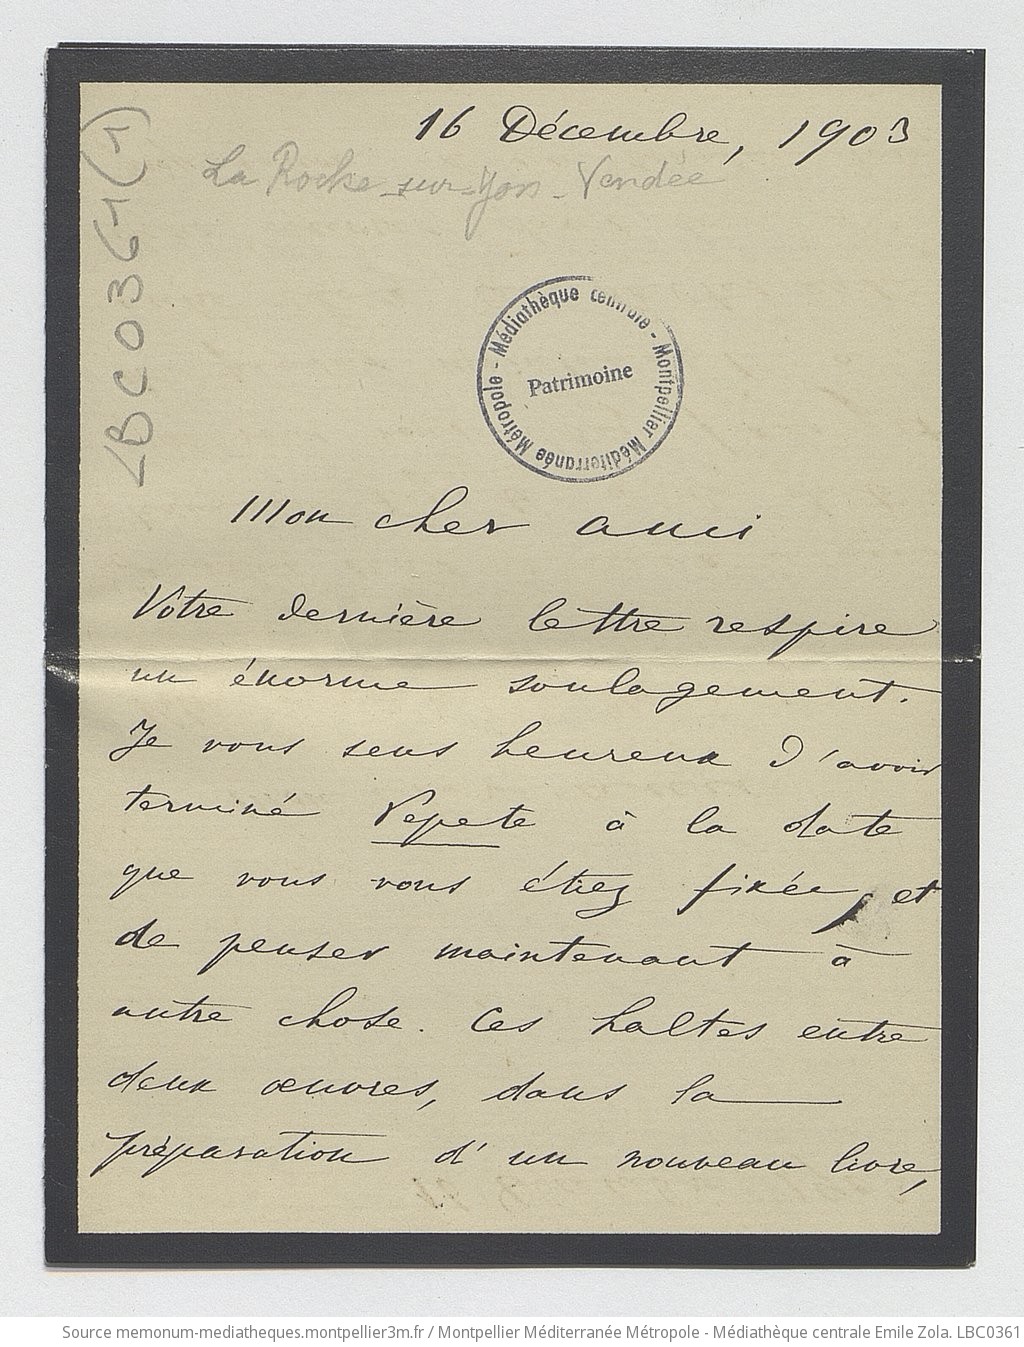 16 Décembre, 1903
La Roche-sur-Yon - Vendée
LBC0361(1)
Médiathèque centrale - Montpellier Méditerranée Métropole -
Patrimoine
Mon cher ami
Votre dernière lettre respire
un énorme soulagement.
Je vous sens heureux d'avoir
terminé Pepete à la date
que vous vous étiez fixée, et
de penser maintenant à
autre chose. Ces haltes entre
deux œuvres, dans la
préparation d'un nouveau livre,
Source memonum-mediatheques.montpellier3m.fr / Montpellier Méditerranée Métropole - Médiathèque centrale Emile Zola. LBC0361